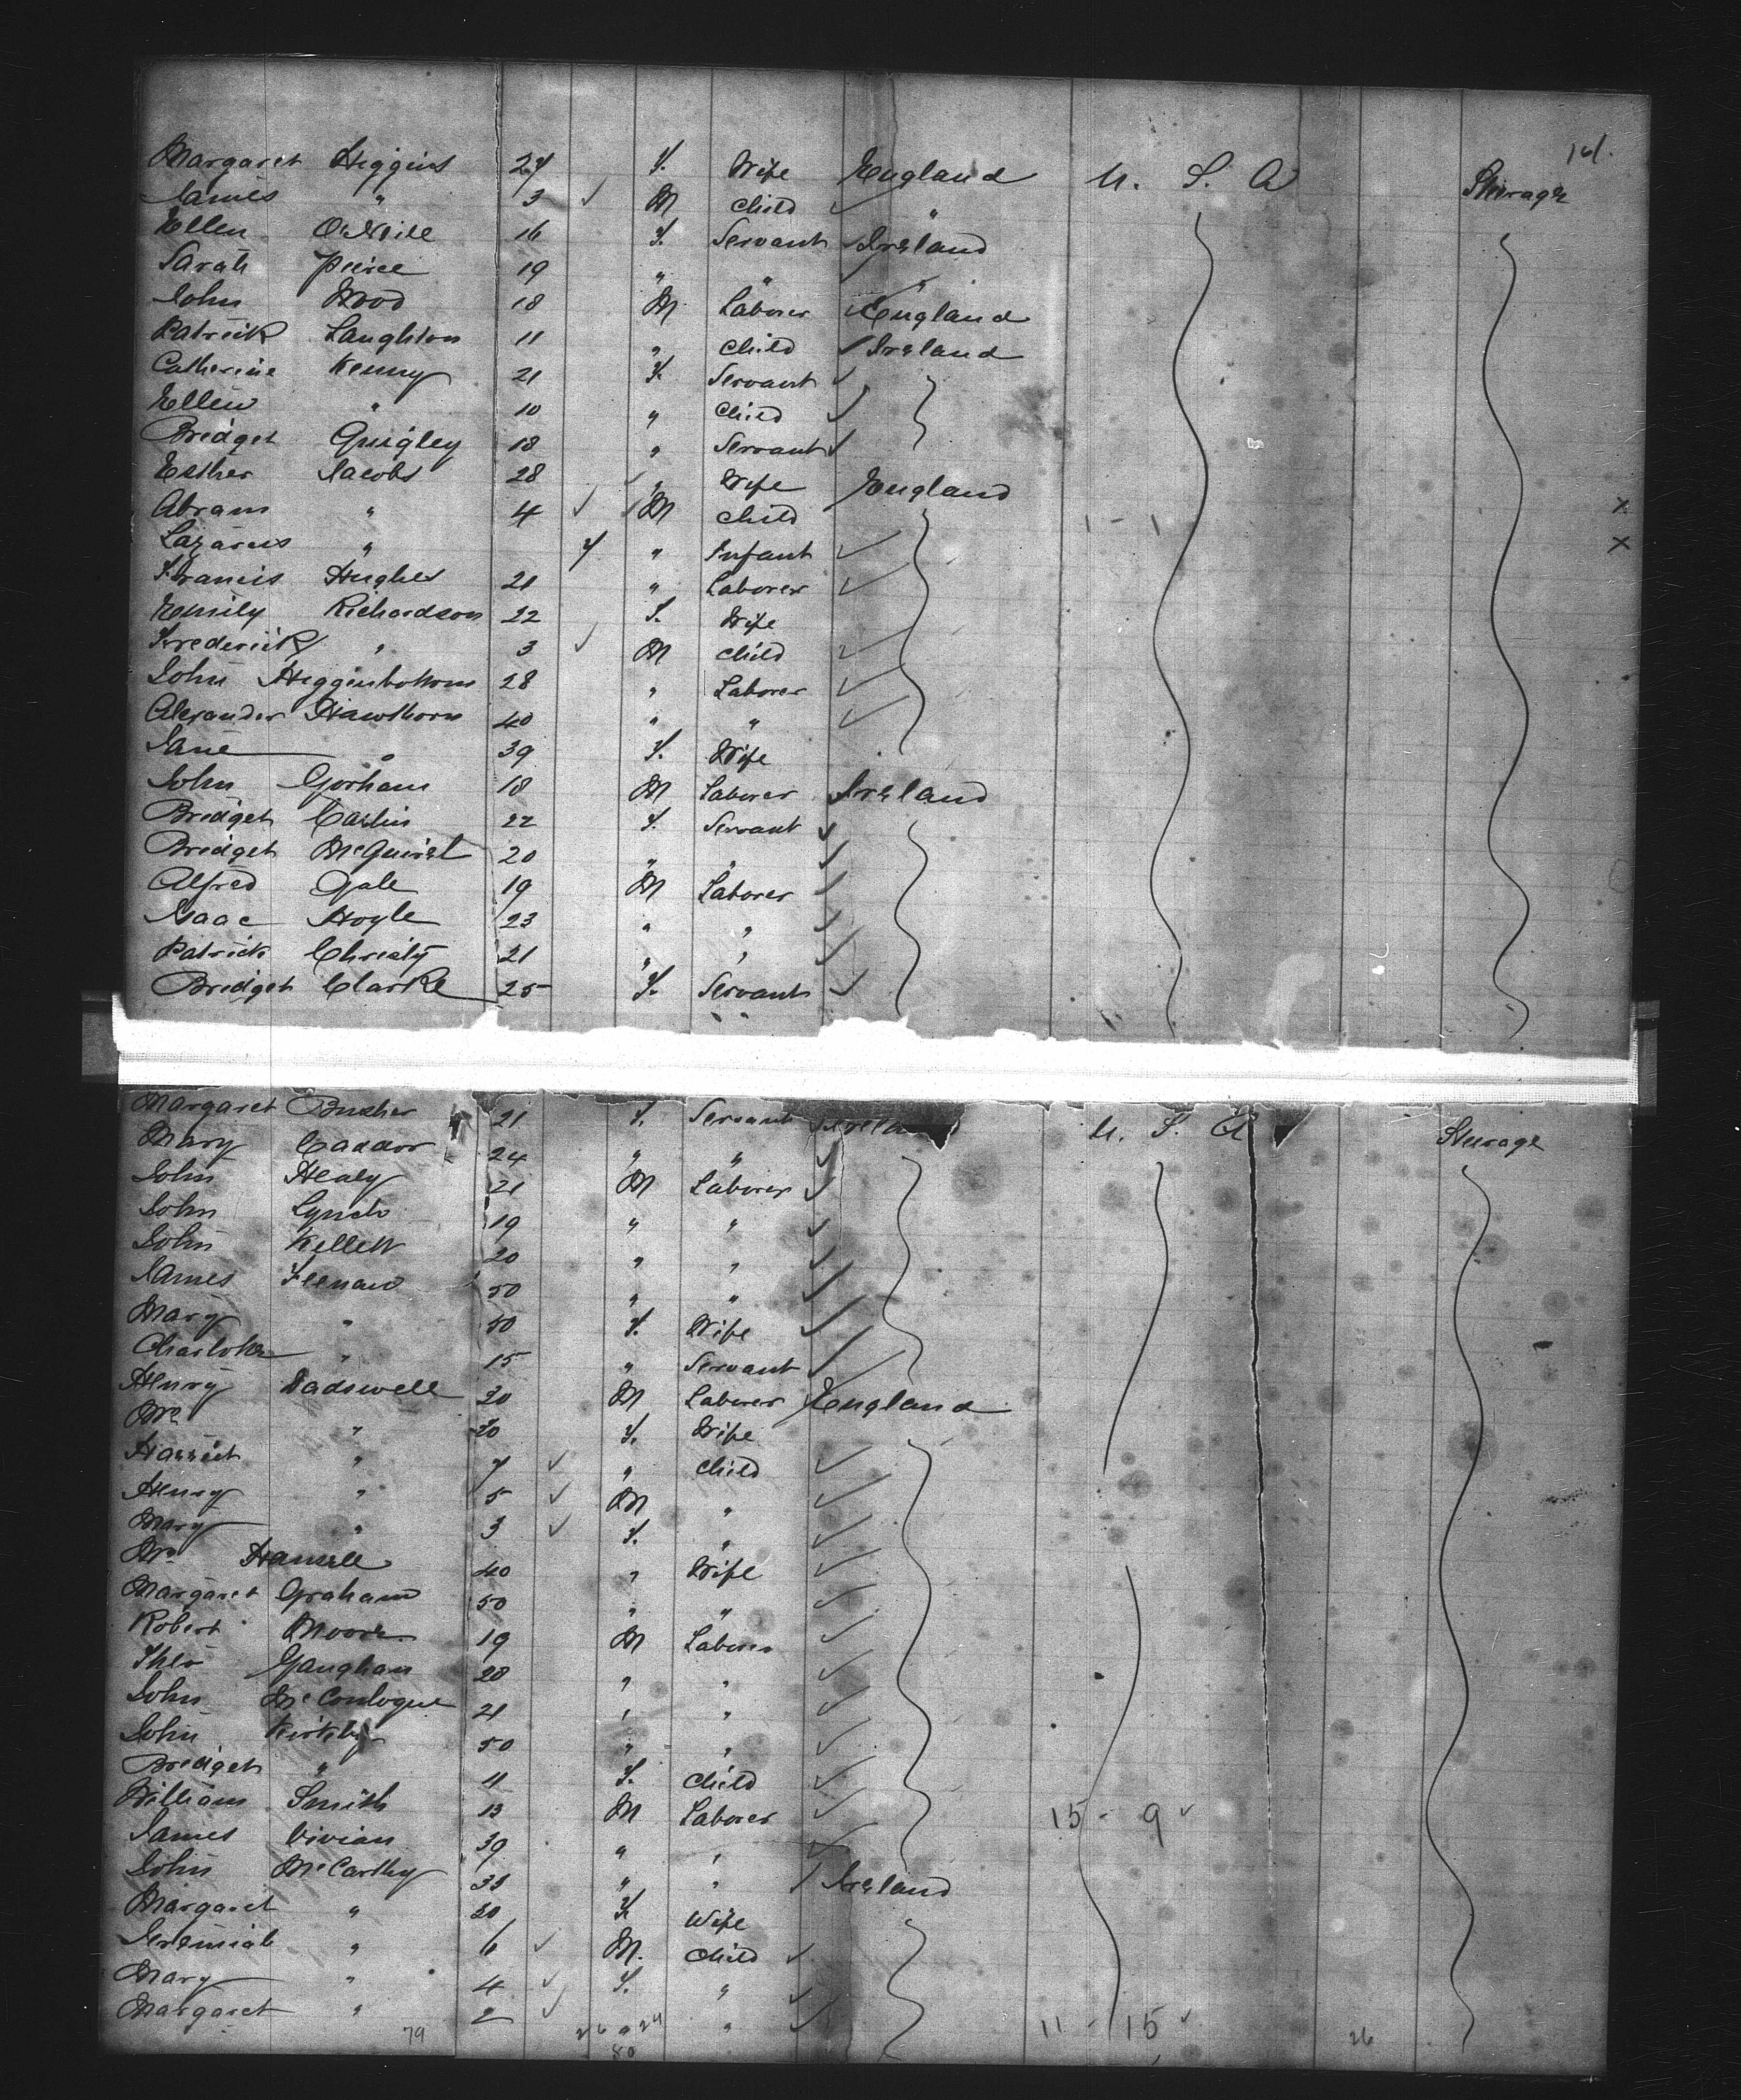 161.
Margaret Higgins 27 F. Wife England U. S. A Steerage
James " 3 ✓ M Child ✓ "
Ellen O'Neill 16 F. Servant ✓ Ireland
Sarah Peirce 19 " " "
John Wood 18 M Laborer ✓ England
Patrick Laughton 11 " Child ✓ Ireland
Catherine Kenny 21 F. Servant ✓
Ellen " 10 " Child ✓
Bridget Quigley 18 " Servant ✓
Esther Jacobs 28 " Wife England
Abram " 4 ✓ M Child 1 - 1 x
Lazarus " 7 " Infant ✓ x
Francis Hughes 21 " Laborer ✓
Emily Richardson 22 F. Wife
Frederick " 3 ✓ M Child ✓
John Higginbottom 28 " Laborer ✓
Alexander Hawthorn 40 " " ✓
Jane " 39 F. Wife
John Gorham 18 M Laborer Ireland
Bridget Carlin 22 F. Servant ✓
Bridget McGuirel 20 " " ✓
Alfred Gale 19 M Laborer ✓
Isaac Hoyle 23 " " ✓
Patrick Christy 21 " " ✓
Bridget Clarke 25 F. Servant ✓
Margaret Busher 21 F. Servant Irela U. S. A Steerage
Mary Caddor 24 " " ✓
John Healy 21 M Laborer ✓
John Lynch 19 " " ✓
John Kellett 20 " " ✓
James Feenan 50 " " ✓
Mary " 50 F. Wife ✓
Charlotte " 15 " Servant ✓
Henry Dadswell 30 M Laborer England
Mrs " 30 F. Wife
Harriet " 7 ✓ " Child ✓
Henry " 5 ✓ M " ✓
Mary " 3 ✓ F. " ✓
Mrs 40 " Wife ✓
Margaret Graham 50 " " ✓
Robert Moore 19 M Laborer ✓
Theo Gaughan 28 " " ✓
John McConlogue 21 " " ✓
John Kirkby 50 " " ✓
Bridget " 11 F. Child ✓
William Smith 13 M Laborer ✓ 15 - 9 ✓
James Vivian 39 " " ✓
John McCarthy 35 " " Ireland
Margaret " 30 F. Wife
Jeremiah " 6 ✓ M. Child ✓
Mary " 4 ✓ F. " ✓
Margaret " 2 ✓ " " ✓ 11 - 15 ✓
79 26 29 26
80